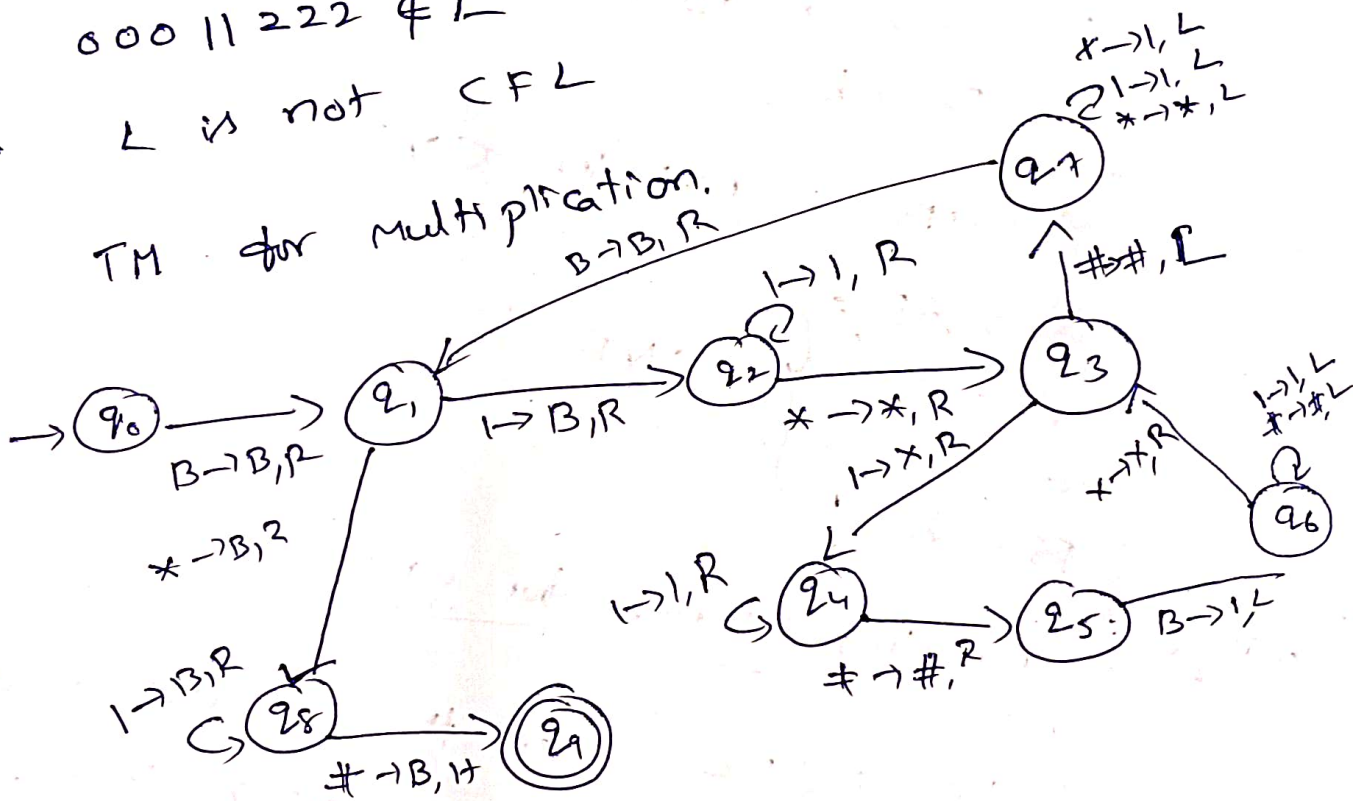 000 11 222 ∉ L
L is not CFL
TM for multiplication.
x→1, L
1→1, L
*→*, L
q7
B→B, R
#→#, L
1→1, R
q0
B→B, R
q1
1→B, R
q2
*→*, R
q3
1→x, R
x→x, R
1→1, L
#→#, L
q6
*→B, R
1→1, R
q4
#→#, R
q5
B→1, L
1→B, R
q8
#→B, H
q9